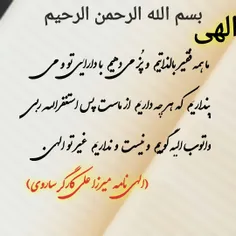 بسم الله الرحمن الرحیم
الهی
ما همه فقیر بالذاتیم و پُز می دهیم با دارایی تو و می
پنداریم که هر چه داریم از ماست پس استغفرالله ربی
و اتوب الیه گویم و نیست و نداریم غیر تو الهی.
(الهی نامه میرزا علی کارگر ساروی)